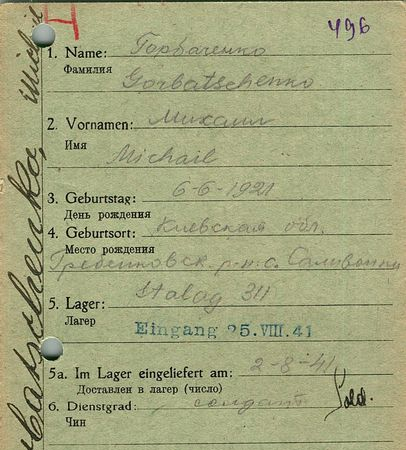 496
1. Name: Горбаченко
Фамилия
Gorbatschenko
2. Vornamen: Михаил
Имя
Michail
3. Geburtstag: 6-6-1921
День рождения
4. Geburtsort: Киевская обл.
Место рождения
Гребенковск. р-н. с. Саливонки
5. Lager: Stalag 311
Лагер
Eingang 25.VIII.41
5a. Im Lager eingeliefert am: 2-8-41
Доставлен в лагер (число)
6. Dienstgrad: солдат Sold.
Чин